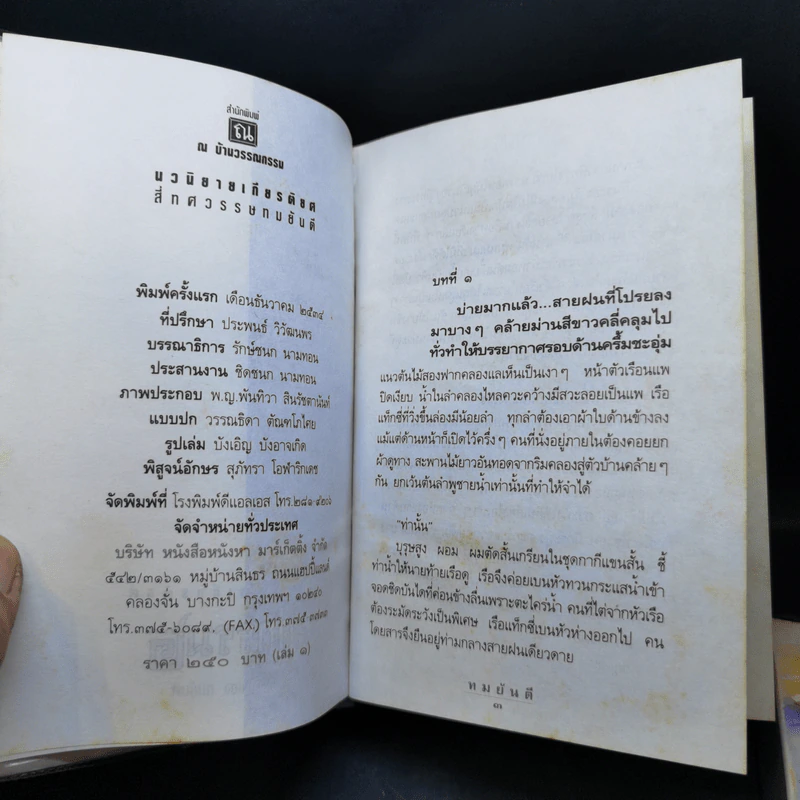 สำนักพิมพ์
ณ
ณ บ้านวรรณกรรม
นวนิยายเกียรติยศ
สี่ทศวรรษทมยันตี
พิมพ์ครั้งแรก เดือนธันวาคม ๒๕๓๔
ที่ปรึกษา ประพนธ์ วิวัฒนพร
บรรณาธิการ รักษ์ชนก นามทอน
ประสานงาน ชิดชนก นามทอน
ภาพประกอบ พ.ญ.พันทิวา สินรัชตานันท์
แบบปก วรรณธิดา ตัณฑโกไศย
รูปเล่ม บังเอิญ บังอาจเกิด
พิสูจน์อักษร สุภัทรา โอฬาริกเดช
จัดพิมพ์ที่ โรงพิมพ์ดีแอลเอส โทร.๒๘๑-๕๒๐๖
จัดจำหน่ายทั่วประเทศ
บริษัท หนังสือหนังหา มาร์เก็ตติ้ง จำกัด
๕๔๒/๓๑๖๑ หมู่บ้านสินธร ถนนแฮปปี้แลนด์
คลองจั่น บางกะปิ กรุงเทพฯ ๑๐๒๔๐
โทร.๓๗๕-๖๐๘๙. (FAX.) โทร.๓๗๕
ราคา ๒๕๐ บาท (เล่ม ๑)
บทที่ ๑
บ่ายมากแล้ว...สายฝนที่โปรยลง
มาบางๆ คล้ายม่านสีขาวคลี่คลุมไป
ทั่วทำให้บรรยากาศรอบด้านครึ้มชะอุ่ม
แนวต้นไม้สองฟากคลองแลเห็นเป็นเงาๆ หน้าตัวเรือนแพ
ปิดเงียบ น้ำในลำคลองไหลคว้างมีสวะลอยเป็นแพ เรือ
แท็กซี่ที่วิ่งขึ้นล่องมีน้อยลำ ทุกลำต้องเอาผ้าใบด้านข้างลง
แม้แต่ด้านหน้าก็เปิดไว้ครึ่งๆ คนที่นั่งอยู่ภายในต้องคอยยก
ผ้าดูทาง สะพานไม้ยาวอันทอดจากริมคลองสู่ตัวบ้านคล้ายๆ
กัน ยกเว้นต้นลำพูชายน้ำเท่านั้นที่ทำให้จำได้
"ท่านั้น"
บุรุษสูง ผอม ผมตัดสั้นเกรียนในชุดกากีแขนสั้น ชี้
ท่าน้ำให้นายท้ายเรือดู เรือจึงค่อยเบนหัวทวนกระแสน้ำเข้า
จอดชิดบันไดที่ค่อนข้างลื่นเพราะตะไคร่น้ำ คนที่ไต่จากหัวเรือ
ต้องระมัดระวังเป็นพิเศษ เรือแท็กซี่เบนหัวห่างออกไป คน
โดยสารจึงยืนอยู่ท่ามกลางสายฝนเดียวดาย
ทมยันตี
๓